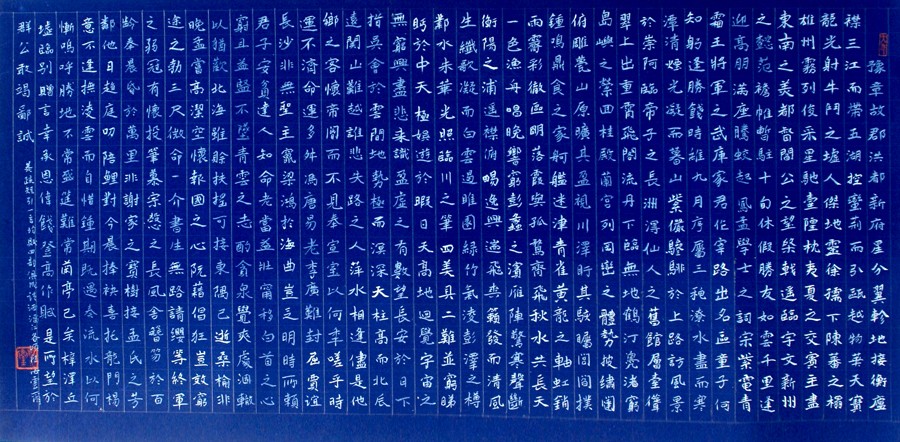 豫章故郡洪都新府星分翼軫地接衡廬
襟三江而帶五湖控蠻荊而引甌越物華天寶
龍光射牛鬥之墟人傑地靈徐孺下陳蕃之榻
雄州霧列俊采星馳臺隍枕夷夏之交賓主盡
東南之美都督閻公之望棨戟遥臨宇文新州
之懿范襜帷暫駐十旬休假勝友如雲千里逢
迎高朋滿座騰蛟起鳳孟學士之詞宗紫電青
霜王將軍之武庫家君作宰路出名區童子何
知躬逢勝餞時維九月序屬三秋潦水盡而寒
潭清煙光凝而暮山紫儼驂騑於上路訪風景
於崇阿臨帝子之長洲得仙人之舊館層臺聳
翠上出重霄飛閣流丹下臨無地鶴汀鳧渚窮
島嶼之縈回桂殿蘭宮列岡巒之體勢披繡闥
俯雕甍山原曠其盈視川澤盱其駭矚閭閻撲
鐘鳴鼎食之家舸艦迷津青雀黃龍之軸虹銷
雨霽彩徹區明落霞與孤鶩齊飛秋水共長天
一色漁舟唱晚響窮彭蠡之濱雁陣驚寒聲斷
衡陽之浦遥襟俯暢逸興遄飛爽籟發而清風
生纖歌凝而白雲遏睢園綠竹氣凌彭澤之樽
鄴水朱華光照臨川之筆四美具二難並窮睇
眄於中天極娛遊於暇日天高地迥覺宇宙之
無窮興盡悲來識盈虛之有數望長安於日下
指吳會於雲間地勢極而南溟深天柱高而北辰
遠關山難越誰悲失路之人萍水相逢盡是他
鄉之客懷帝閽而不見奉宣室以何年嗟乎時
運不濟命運多舛馮唐易老李廣難封屈賈誼
長沙非無聖主竄梁鴻於海曲豈乏明時所賴
君子安貧達人知命老當益壯甯移白首之心
窮且益堅不墜青雲之志酌貪泉覺爽處涸轍
以猶歡北海雖賒扶搖可接東隅已逝桑榆非
晚孟嘗高潔空懷報國之心阮藉倡狂豈效窮
途之勃三尺微命一介書生無路請纓等終軍
之弱冠有懷投筆慕宗愨之長風舍簪笏於百
齡奉晨昏於萬里非謝家之寶樹接孟氏之芳
鄰他日趨庭叨陪鯉對今晨捧袂喜托龍門楊
意不逢撫凌雲而自惜鍾期既遇奏流水以何
慚嗚呼勝地不常盛筵難再蘭亭已矣梓澤丘
墟臨別贈言幸承恩餞登高作賦是所望於
群公敢竭鄙誠